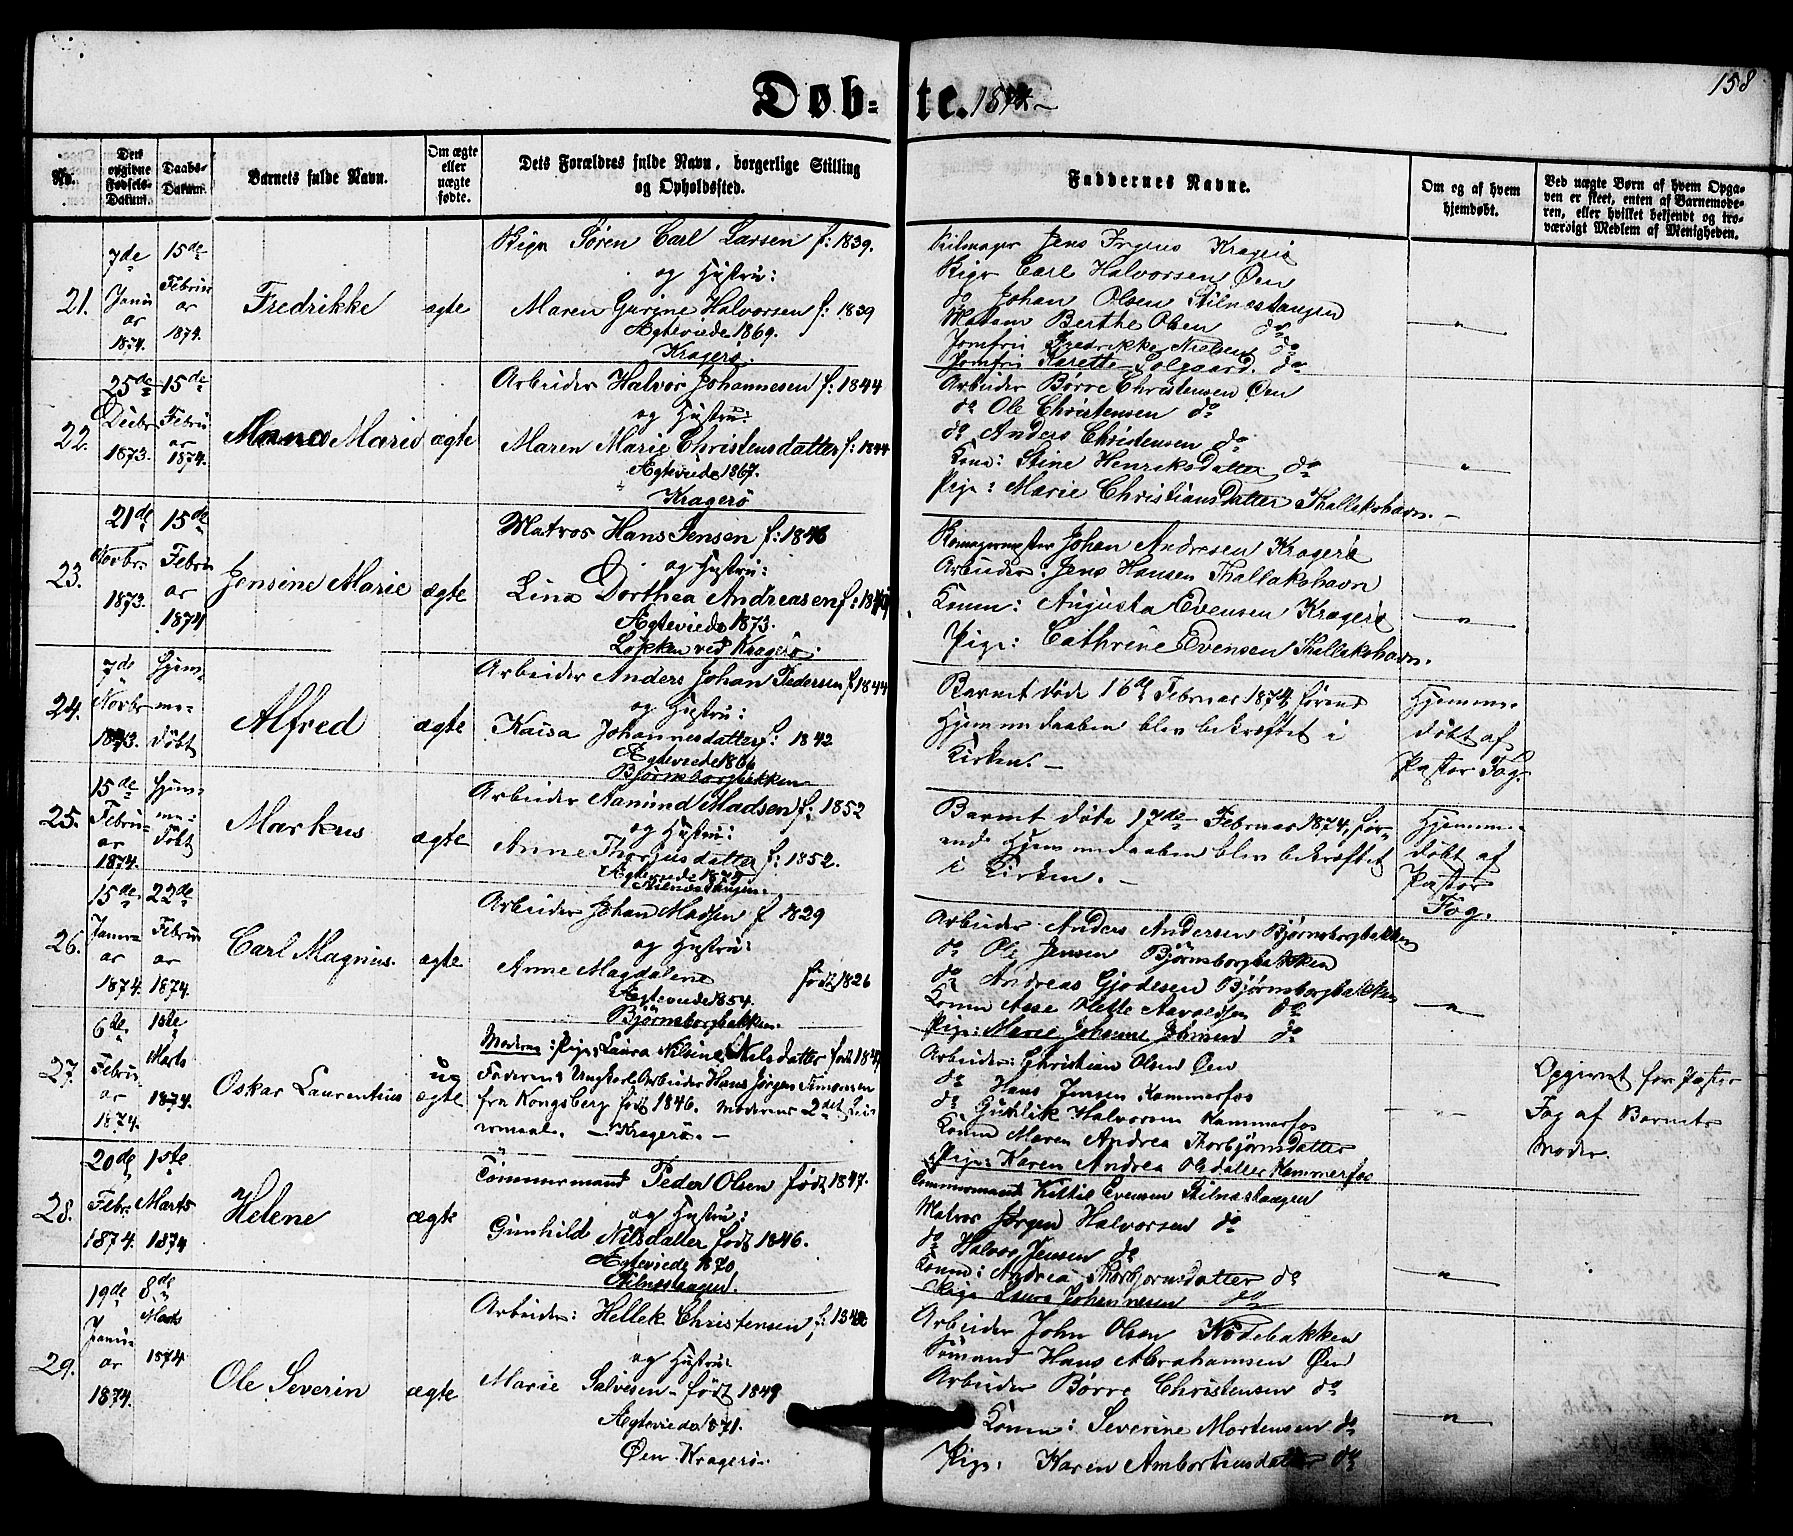 158
Døb- te. 1874 -
No.
Dets opgivne Fødsels-Datum.
Daabs-Datum.
Barnets fulde Navn.
Om ægte eller uægte fødte.
Dets Forældres fulde Navn, borgerlige Stilling og Opholdssted.
Faddernes Navne.
Om og af hvem hjemdøbt.
Ved uægte Børn af hvem Opga-
ven er skeet, enten af Barnemode-
ren, eller hvilket bekjendt og tro-
værdigt Medlem af Menigheden.
21.
7de Januar 1874.
15de Februar 1874.
Fredrikke
ægte
Søren Carl Larsen f: 1839.
og Hustru:
Maren Gurine Halvorsen f: 1839
Ægteviede 1869.
Kragerø.
Jens Kragerø
Carl Halvorsen Øen
do Johan Olsen Stilnestangen
Madam Berthe Olsen do
Jomfru Fredrikke Nielsen do
Jomfru Karette Solgaard. do
"
22.
25de Decbr 1873.
15de Februar 1874.
Marie
ægte
Arbeider Halvor Johannesen f: 1844
og Hustru:
Maren Marie Christensdatter f: 1844
Ægteviede 1867.
Kragerø
Arbeider Børre Christensen Øen
do Ole Christensen do
do Anders Christensen do
Kone: Stine Henriksdatter do
Pige: Marie Christiansdatter Thallakshavn. -
"
23.
21de Novbr. 1873.
15de Februar 1874
Jensine Marie
ægte
Matros Hans Jensen f: 1846
og Hustru:
Lina Dorthea Andreasen f:
Ægteviede 1873.
Løkken ved Kragerø.
Skomagermester Johan Andresen Kragerø
Arbeider Jens Hansen Thallakshavn
Konen: Augusta Evensen Kragerø
Pige: Cathrine Evensen Thallakshavn.
"
24.
7de Novbr 1873.
hjemmedøbt
Alfred
ægte
Arbeider Anders Johan Pedersen f. 1844
og Hustru:
Kaisa Johannesdatter f: 1842
Ægteviede
Bjørnsborgbakken
Barnet døde 16de Februar 1874 førend
Hjemmedaaben blev bekræftet i
Kirken. -
Hjemme-
døbt af
Pastor Fog.
25.
15de Februar 1874.
hjemmedøbt
Markus
ægte
Arbeider Aanund Madsen f: 1852
og Hustru:
Anne datter f: 1852.
Ægteviede
Stilnestangen.
Barnet døde 17de Februar 1874, før-
ende Hjemmedaaben blev bekræftet
i Kirken. -
Hjemme-
døbt af
Pastor
Fog.
26.
15de Januar 1874.
22de Februar 1874.
Carl Magnus.
ægte
Arbeider Johan Madsen f 1829
og Hustru:
Anne Magdalene født 1826
Ægteviede 1854.
Bjørnsborgbakken.
Arbeider Anders Andersen Bjørnsborgbakken
do Ole Jensen Bjørnsborgbakken
do Andreas Gjodesen Bjørnsborgbakken
Konen Mette do
Pige: Marie Johanne Johnsen do
"
27.
6te Februar 1874.
1ste Marts 1874.
Oskar Laurentius
uægte
Moderen: Pige: Laura Nilsine Nilsdatter født
Faderen: Ungkarl Arbeider Hans Jørgen Simonsen
fra Kongsberg født 1846. Moderens 2det Lei-
ermaal. - Kragerø. -
Arbeider: Christian Olsen Øen
do Hans Jensen Kammerfos
do Gunlik Halvorsen Kammerfos
Konen Maren Andrea Thorbjørnsdatter
Pige: Karen Andrea Olsdatter Kammerfos
"
Opgivet for Pastor
Fog af Barnets
Moder.
28.
20de Febr. 1874.
1ste Marts 1874
Helene
ægte
Tømmermand Peder Olsen født 1847.
og Hustru:
Gunhild Nilsdatter født 1846.
Ægteviede 1870
Stilnestangen.
Tømmermand Kittil Evensen Stilnestangen
Matros Jørgen Halvorsen do
do Halvor Jensen do
Konen: Andrea Thorbjørnsdatter do
Pige Laura Johannesen do
"
29.
19de Januar 1874.
8de Marts 1874
Ole Severin
ægte
Arbeider: Hellek Christensen f:
og Hustru:
Marie Salvesen - født 1849
Ægteviede 1871.
Øen Kragerø.
Arbeider John Olsen Kodebakken
Sømand Hans Abrahamsen Øen
Arbeider Børre Christensen do
Konen: Severine Mortensen do
Pige: Karen do
"